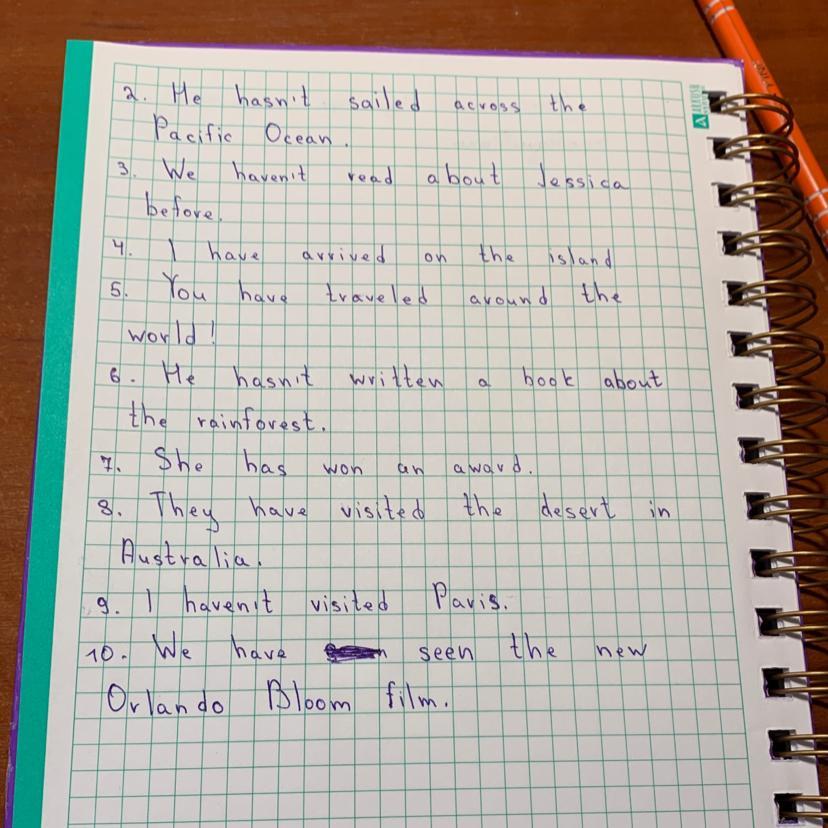 2. He hasn't sailed across the
Pacific Ocean.
3. We haven't read about Jessica
before.
4. I have arrived on the island
5. You have traveled around the
world!
6. He hasn't written a book about
the rainforest.
7. She has won an award.
8. They have visited the desert in
Australia.
9. I haven't visited Paris.
10. We have seen the new
Orlando Bloom film.